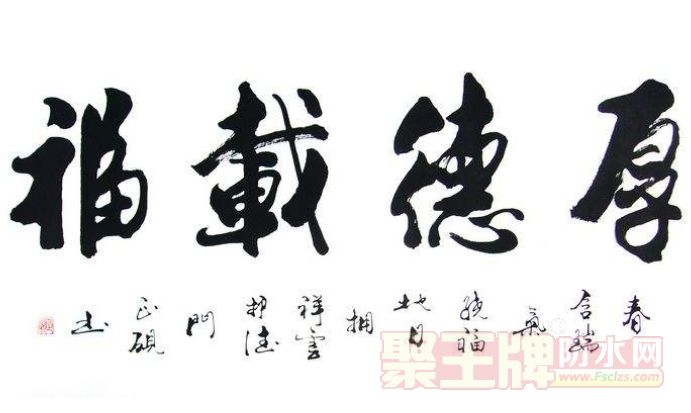 厚德載福
春含瑞氣繞福地日拥祥雲抱德門
硯书
聚王牌防水网
www.Fsclzs.com